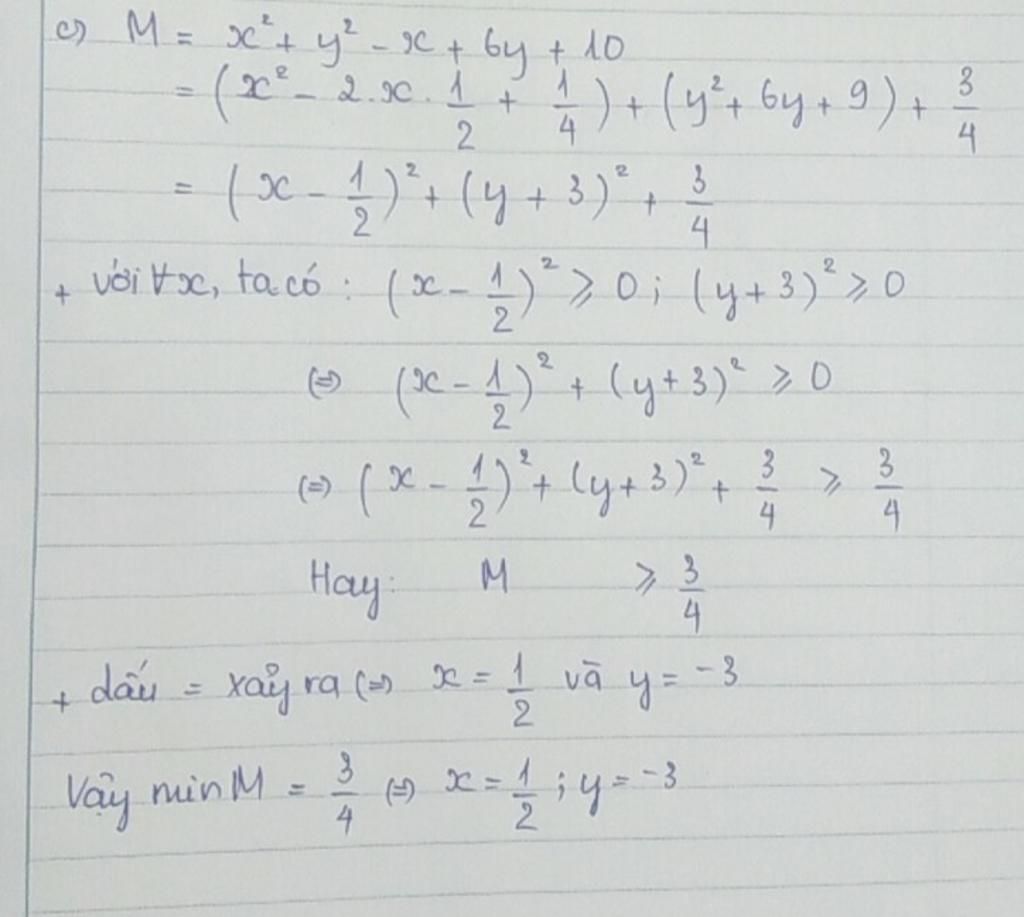 c) M = x² + y² - x + 6y + 10
= (x² - 2.x.1/2 + 1/4) + (y² + 6y + 9) + 3/4
= (x - 1/2)² + (y + 3)² + 3/4
+ với ∀x, ta có: (x - 1/2)² ⩾ 0; (y + 3)² ⩾ 0
(=) (x - 1/2)² + (y + 3)² ⩾ 0
(=) (x - 1/2)² + (y + 3)² + 3/4 ⩾ 3/4
Hay: M ⩾ 3/4
+ dấu = xảy ra (=) x = 1/2 và y = -3
Vậy min M = 3/4 (=) x = 1/2; y = -3